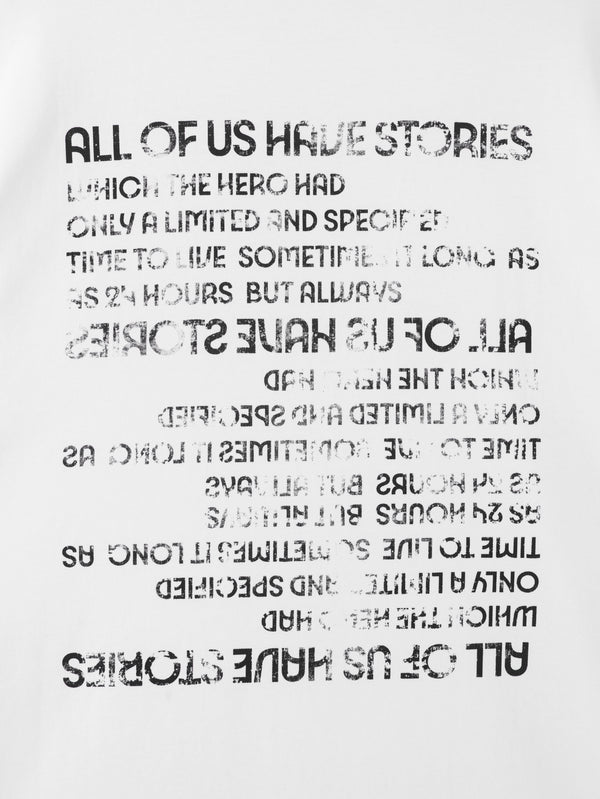 ALL OF US HAVE STORIES
WHICH THE HERO HAD
ONLY A LIMITED AND SPECIFIED
TIME TO LIVE SOMETIMES IT LONG AS
AS 24 HOURS BUT ALWAYS
ALL OF US HAVE STORIES
WHICH THE HERO HAD
ONLY A LIMITED AND SPECIFIED
TIME TO LIVE SOMETIMES IT LONG AS
AS 24 HOURS BUT ALWAYS
AS 24 HOURS BUT ALWAYS
TIME TO LIVE SOMETIMES IT LONG AS
ONLY A LIMITED AND SPECIFIED
WHICH THE HERO HAD
ALL OF US HAVE STORIES